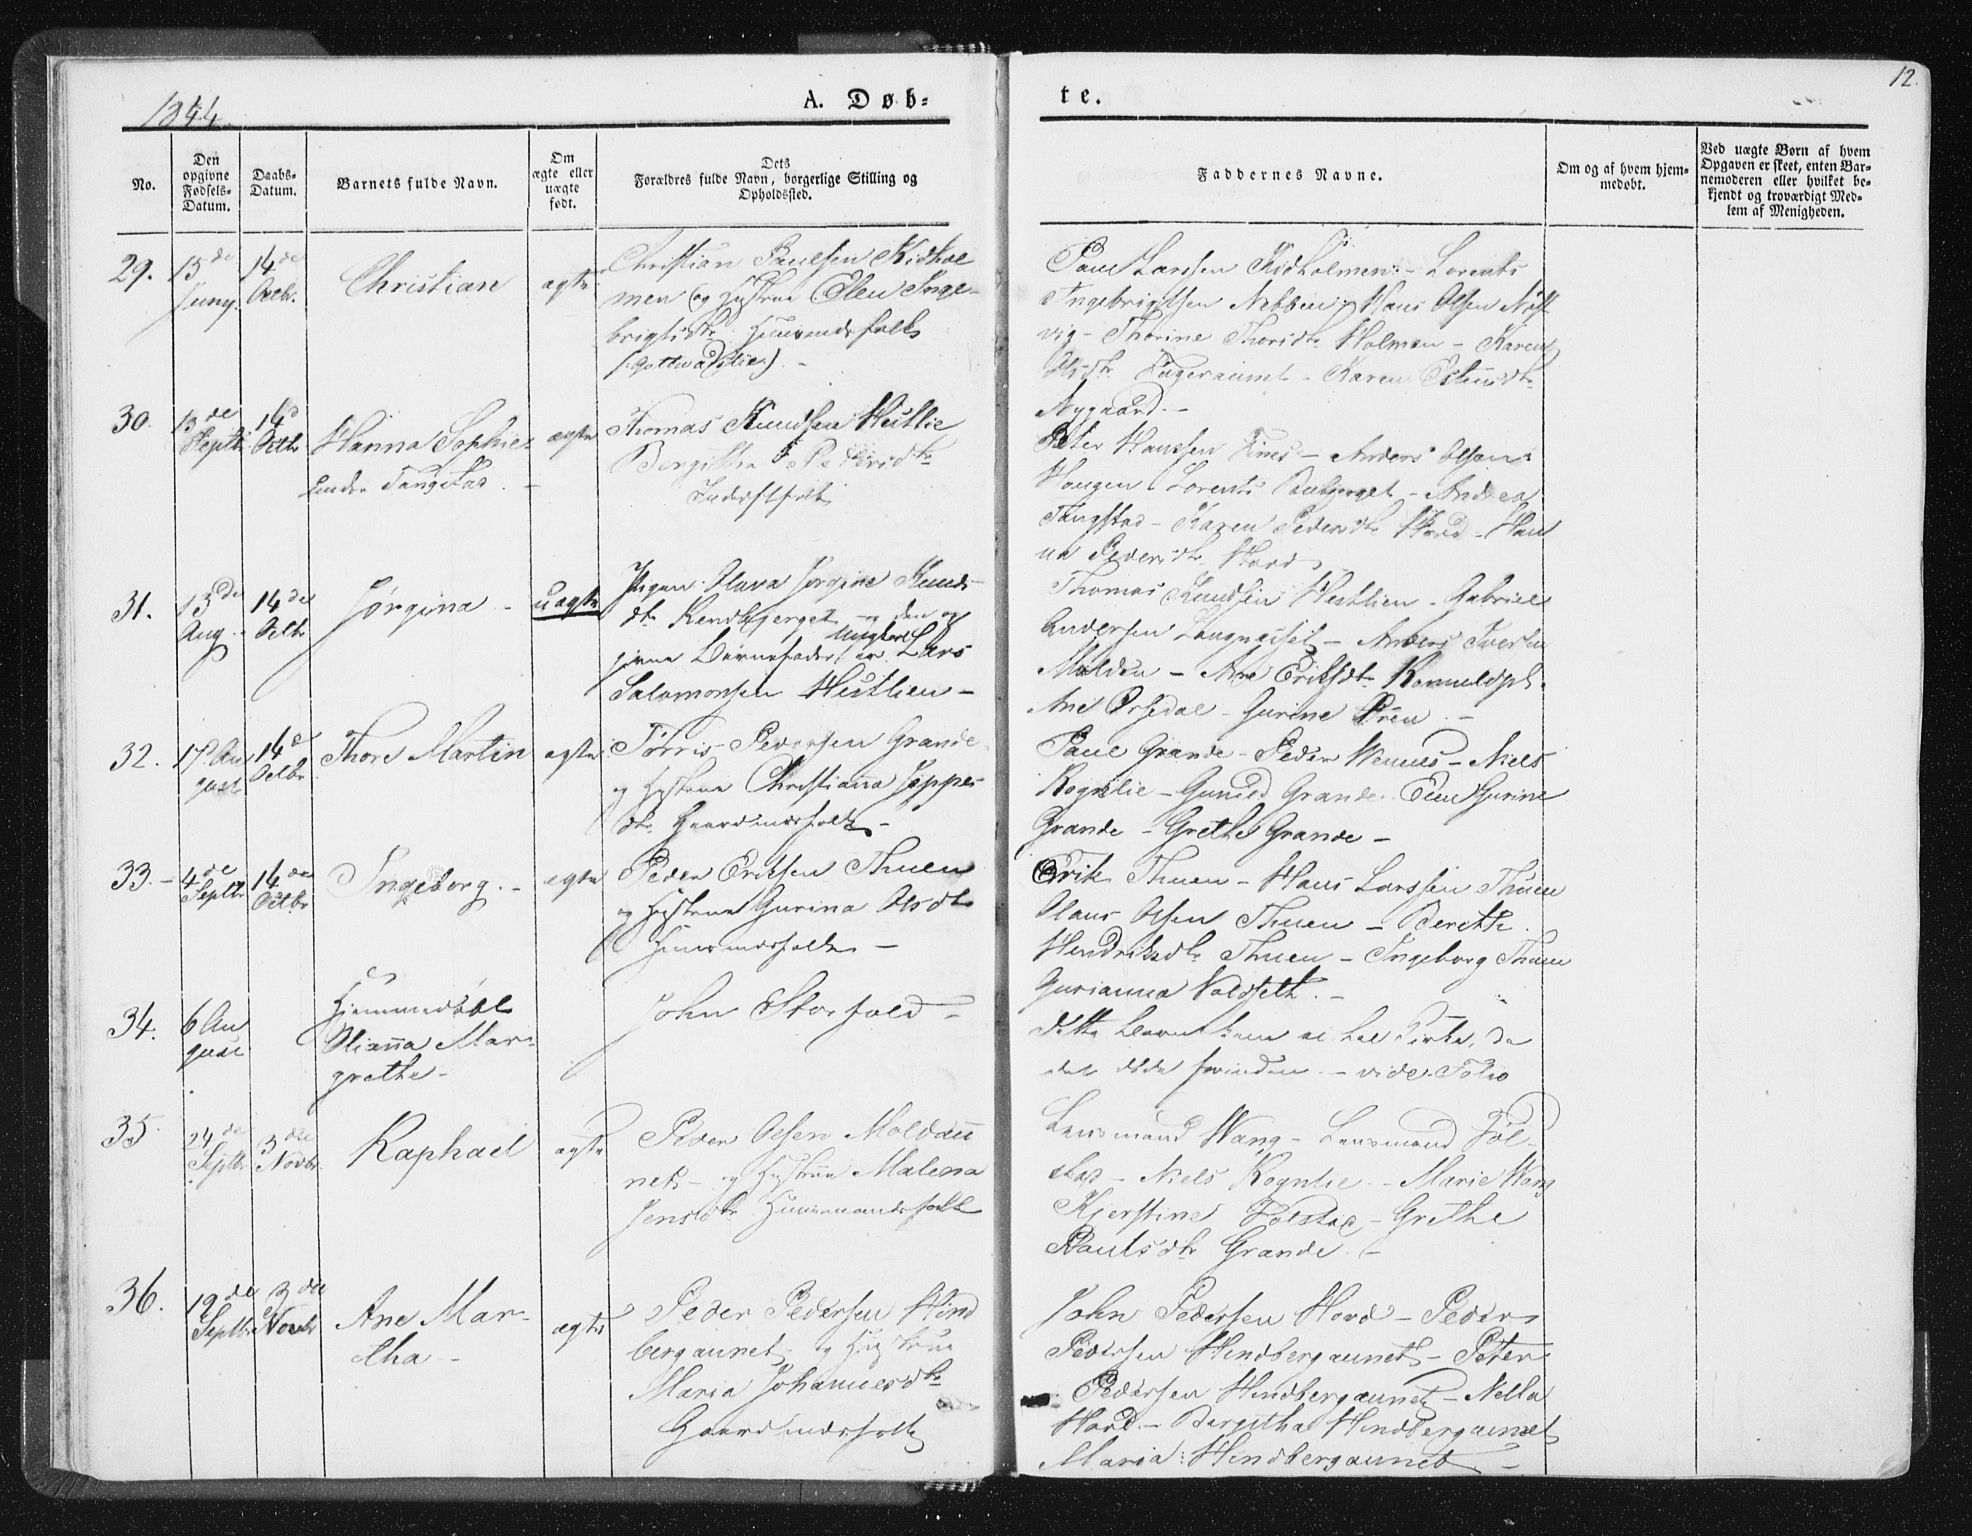 1844
A. Døb-
te.
12.
No.
Den
opgivne
Fødsels-
Datum.
Daabs-
Datum.
Barnets fulde Navn.
Om
ægte eller
uægte
født.
Dets
Forældres fulde Navn, borgerlige Stilling og
Opholdssted.
Faddernes Navne.
Om og af hvem hjem-
medøbt.
Ved uægte Børn af hvem
Opgaven er skeet, enten Bar-
nemoderen eller hvilket be-
kjendt og troværdigt Med-
lem af Menigheden.
29.
15de
Juny.
14de
Octbr.
Christian
ægte
Christian Paulsen Kidhol
men og Hustrue Elen Inge-
brigtsdtr Huusmandsfolk
Paul Larssen Kidholmen - Lorents
Ingebrigtsen Nebben, Hans Olsen
vig - Thorine Thorisdtr Holmen - Karen
Olsdtr - Karen
Nygaard. -
30.
13de
Septbr
14d
Octb
Hanna Sophie
ægte
Thomas Knudsen Hestlie
Bergitha Pedersdtr
Inderstfolk
Peter Hanssen Fines - Anders Olsen
Haugen - Lorents - Andrea
Tangstad - Karen Pedersdtr Hord - Han
na Pedersdtr Hord
31.
13de
Aug.
14de
Octbr
Jørgina -
uægte
Pigen Olava Jørgine Knuds-
dtr Rendbjerget - og den op
givne Barnefader er Lars
Salamonsen Hestlien -
Thomas Knudsen Hestlien - Gabriel
Andersen - Anders Iversen
Melden - Ane Eriksdtr
Ane Orsedal - Gurine Øren. -
32.
17d Au
gust
14d
Octbr
Thore Martin
ægte
Tørris Pedersen Grande
og Hustrue Christianna Jeppes-
dtr Gaardmansfolk -
Paul Grande - Peder Wennes - Niels
Rognlie - Gunild Grande - Elen Gurine
Grande - Grethe Grande -
33. -
4de
Septbr
14de
Octbr
Ingeborg. -
ægte
Peder Eriksen Thuen
og Hustrue Gurina Olsdtr
Huusmansfolk -
Erik Thuen - Hans Larssen Thuen
Olaus Olsen Thuen - Bereth
Hendriksdtr Thuen - Ingeborg Thuen
Gurianna Voldseth. -
34.
6 Au
gust
Hjemmedøbt
Olianna Mar-
grethe -
John Storfold -
dette Barn kom ei til Kirke, da
det døde forinden - vide Folio
35
24de
Septbr
3die
Novbr.
Raphael
ægte
Peder Olsen Moldau
net - og Hustrue Malena
Jensdtr Huusmandsfolk
Lensmand Wang - Lensmand Føl-
stad - Niels Rognlie - Marie Wang
Kjerstine Følstad - Grethe
Paulsdtr Grande. -
36.
19de
Septbr
3die
Novbr
Ane Mar-
tha -
ægte
Peder Pedersen Hind
bergaunet og Hustrue
Maria Johannesdtr
Gaardmansfolk
John Pedersen Hord - Peder
Pedersen Hindbergaunet - Peter
Pedersen Hindbergaunet - Nella
Hord - Bergitha Hindbergaunet
Maria Hindbergaunet -